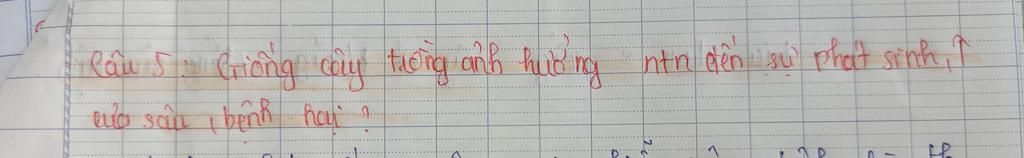 Câu 5: Giống cây trồng ảnh hưởng ntn đến sự phát sinh,↑
của sâu, bệnh hại?